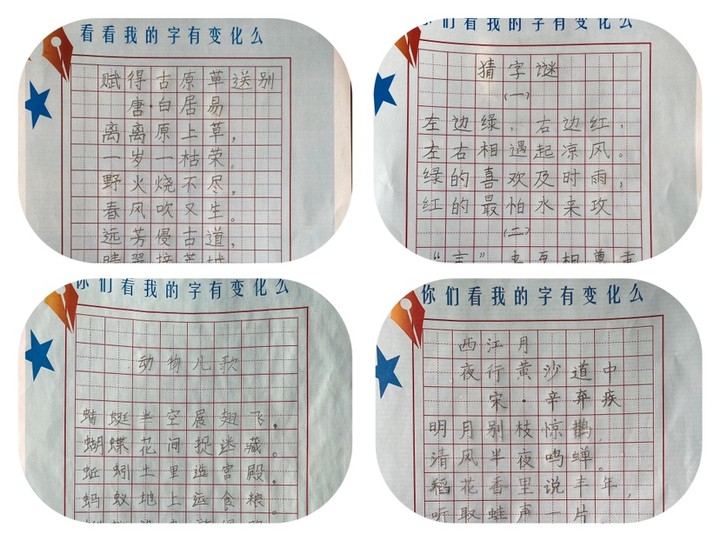 看看我的字有变化么
赋得古原草送别
唐·白居易
离离原上草，
一岁一枯荣。
野火烧不尽，
春风吹又生。
远芳侵古道，
你们看我的字有变化么
猜字谜
（一）
左边绿，右边红，
左右相遇起凉风。
绿的喜欢及时雨，
红的最怕水来攻
（二）
你们看我的字有变化么
动物儿歌
蜻蜓半空展翅飞，
蝴蝶花间捉迷藏。
蚯蚓土里造宫殿，
蚂蚁地上运食粮。
你们看我的字有变化么
西江月
夜行黄沙道中
宋·辛弃疾
明月别枝惊鹊，
清风半夜鸣蝉。
稻花香里说丰年，
听取蛙声一片